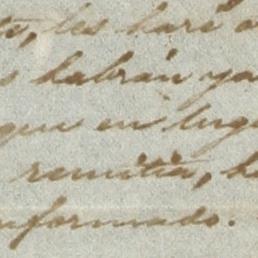 te, les haré a
s habrán ya
que en luga
remitía, h
nformado.